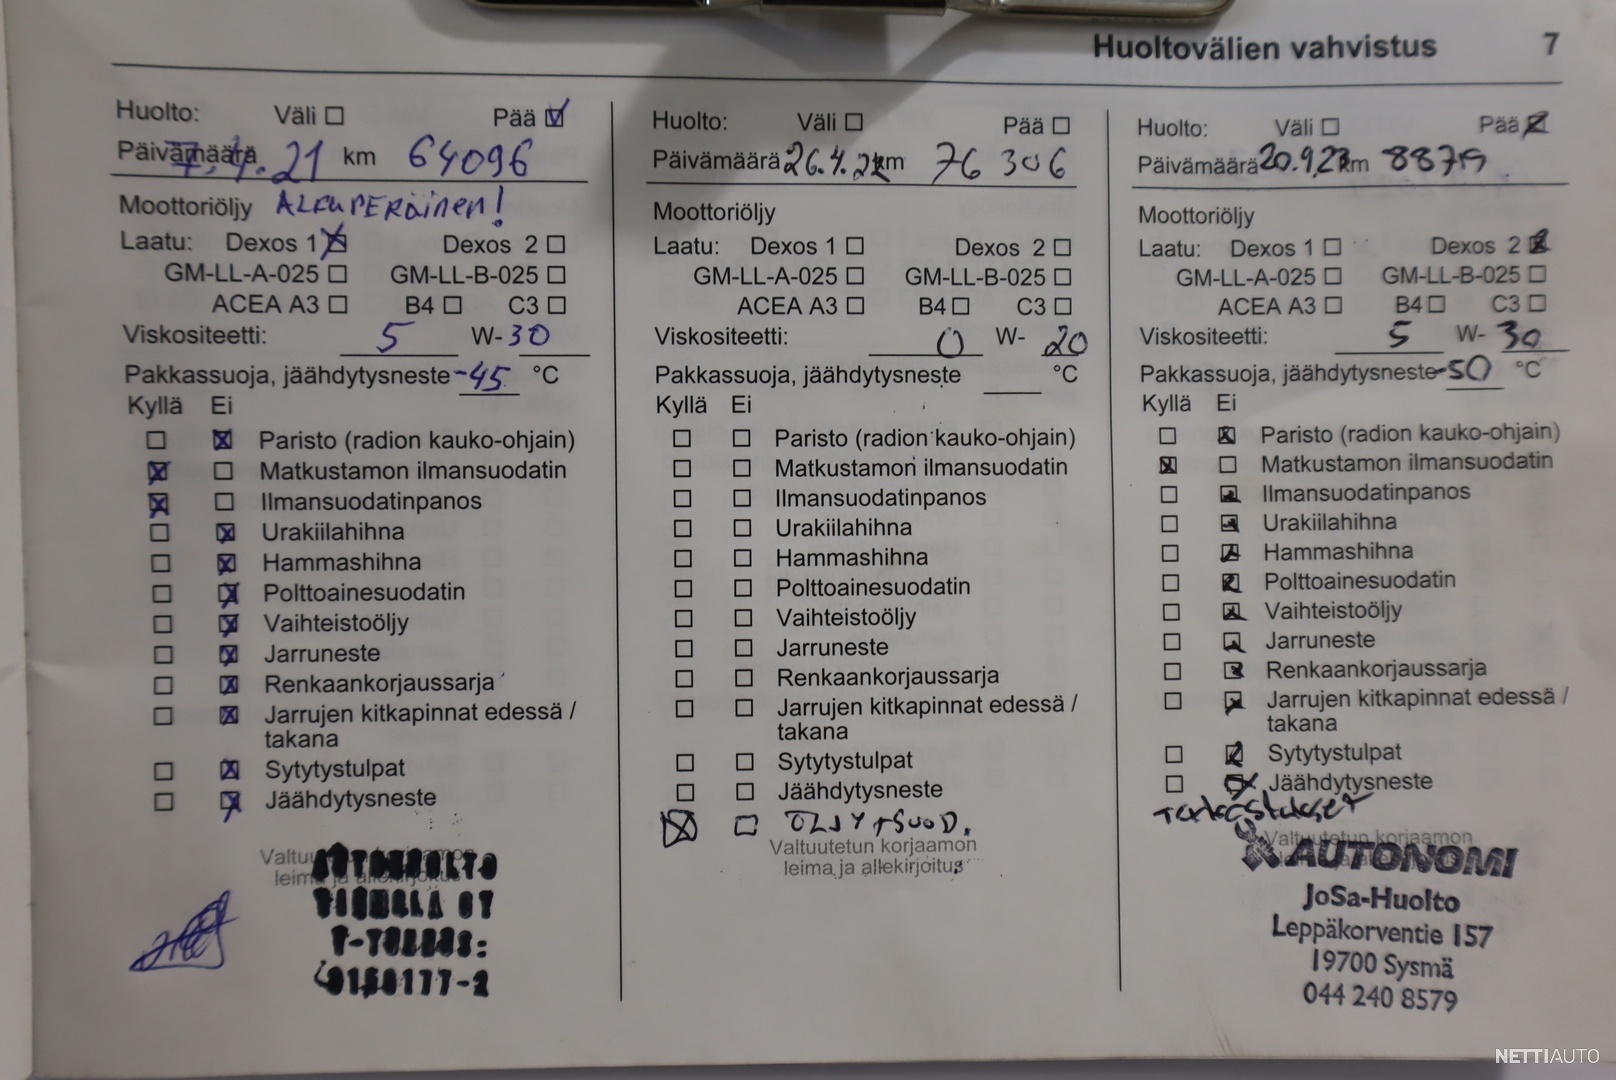 Huoltovälien vahvistus 7
Huolto: Väli Pää
Päivämäärä 7.4.21 km 64096
Moottoriöljy ALKUPERÄINEN!
Laatu: Dexos 1 Dexos 2
GM-LL-A-025 GM-LL-B-025
ACEA A3 B4 C3
Viskositeetti: 5 W-30
Pakkassuoja, jäähdytysneste -45 °C
Kyllä Ei
Paristo (radion kauko-ohjain)
Matkustamon ilmansuodatin
Ilmansuodatinpanos
Urakiilahihna
Hammashihna
Polttoainesuodatin
Vaihteistoöljy
Jarruneste
Renkaankorjaussarja
Jarrujen kitkapinnat edessä /
takana
Sytytystulpat
Jäähdytysneste
leima ja allekirjoitus
Huolto: Väli Pää
Päivämäärä 26.4.22 km 76 306
Moottoriöljy
Laatu: Dexos 1 Dexos 2
GM-LL-A-025 GM-LL-B-025
ACEA A3 B4 C3
Viskositeetti: 0 W- 20
Pakkassuoja, jäähdytysneste °C
Kyllä Ei
Paristo (radion kauko-ohjain)
Matkustamon ilmansuodatin
Ilmansuodatinpanos
Urakiilahihna
Hammashihna
Polttoainesuodatin
Vaihteistoöljy
Jarruneste
Renkaankorjaussarja
Jarrujen kitkapinnat edessä /
takana
Sytytystulpat
Jäähdytysneste
ÖLJY+SUOD.
Valtuutetun korjaamon
leima ja allekirjoitus
Huolto: Väli Pää
Päivämäärä 20.9.23 km
Moottoriöljy
Laatu: Dexos 1 Dexos 2
GM-LL-A-025 GM-LL-B-025
ACEA A3 B4 C3
Viskositeetti: 5 W- 30
Pakkassuoja, jäähdytysneste -50 °C
Kyllä Ei
Paristo (radion kauko-ohjain)
Matkustamon ilmansuodatin
Ilmansuodatinpanos
Urakiilahihna
Hammashihna
Polttoainesuodatin
Vaihteistoöljy
Jarruneste
Renkaankorjaussarja
Jarrujen kitkapinnat edessä /
takana
Sytytystulpat
Jäähdytysneste
Tarkastukset
Valtuutetun korjaamon
AUTONOMI
JoSa-Huolto
Leppäkorventie 157
19700 Sysmä
044 240 8579
NETTIAUTO